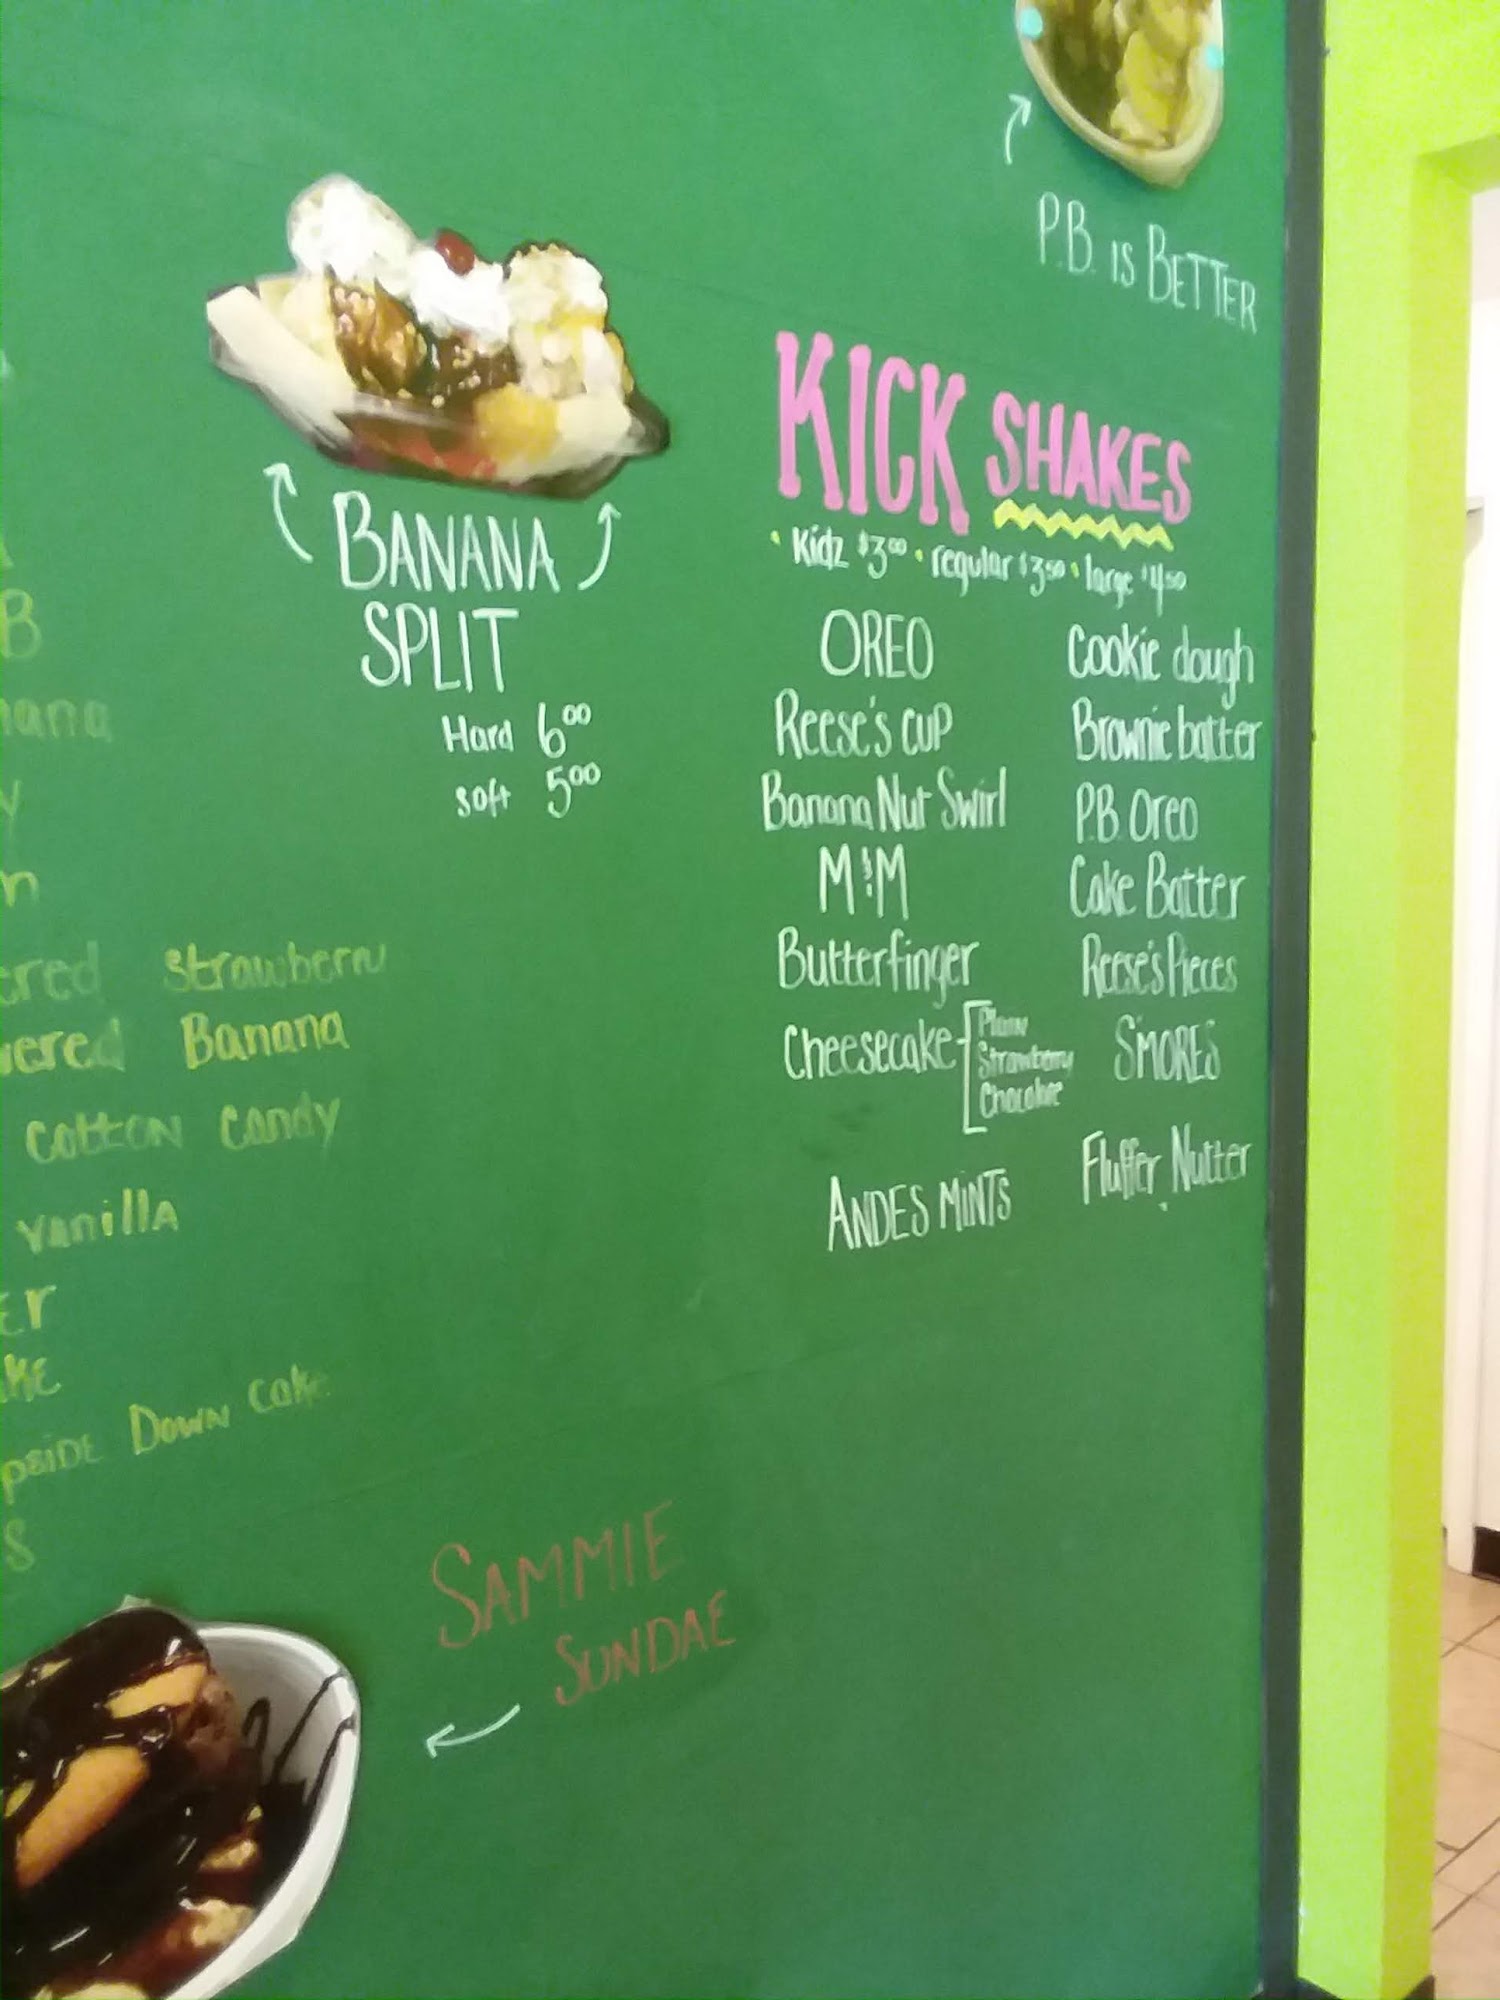 P.B. is BETTER
BANANA
SPLIT
Hard 6.00
soft 5.00
KICK SHAKES
• Kidz $3.00 • regular $3.50 • large $4.50
OREO
Reese's cup
Banana Nut Swirl
M&M
Butterfinger
Cheesecake
Plain
Strawberry
Chocolate
ANDES MINTS
Cookie dough
Brownie batter
P.B. Oreo
Cake Batter
Reese's Pieces
S'MORES
Fluffer Nutter
B
nana
y
n
ered strawberry
vered Banana
cotton candy
vanilla
Er
KE
pside Down cake
S
SAMMIE
SUNDAE